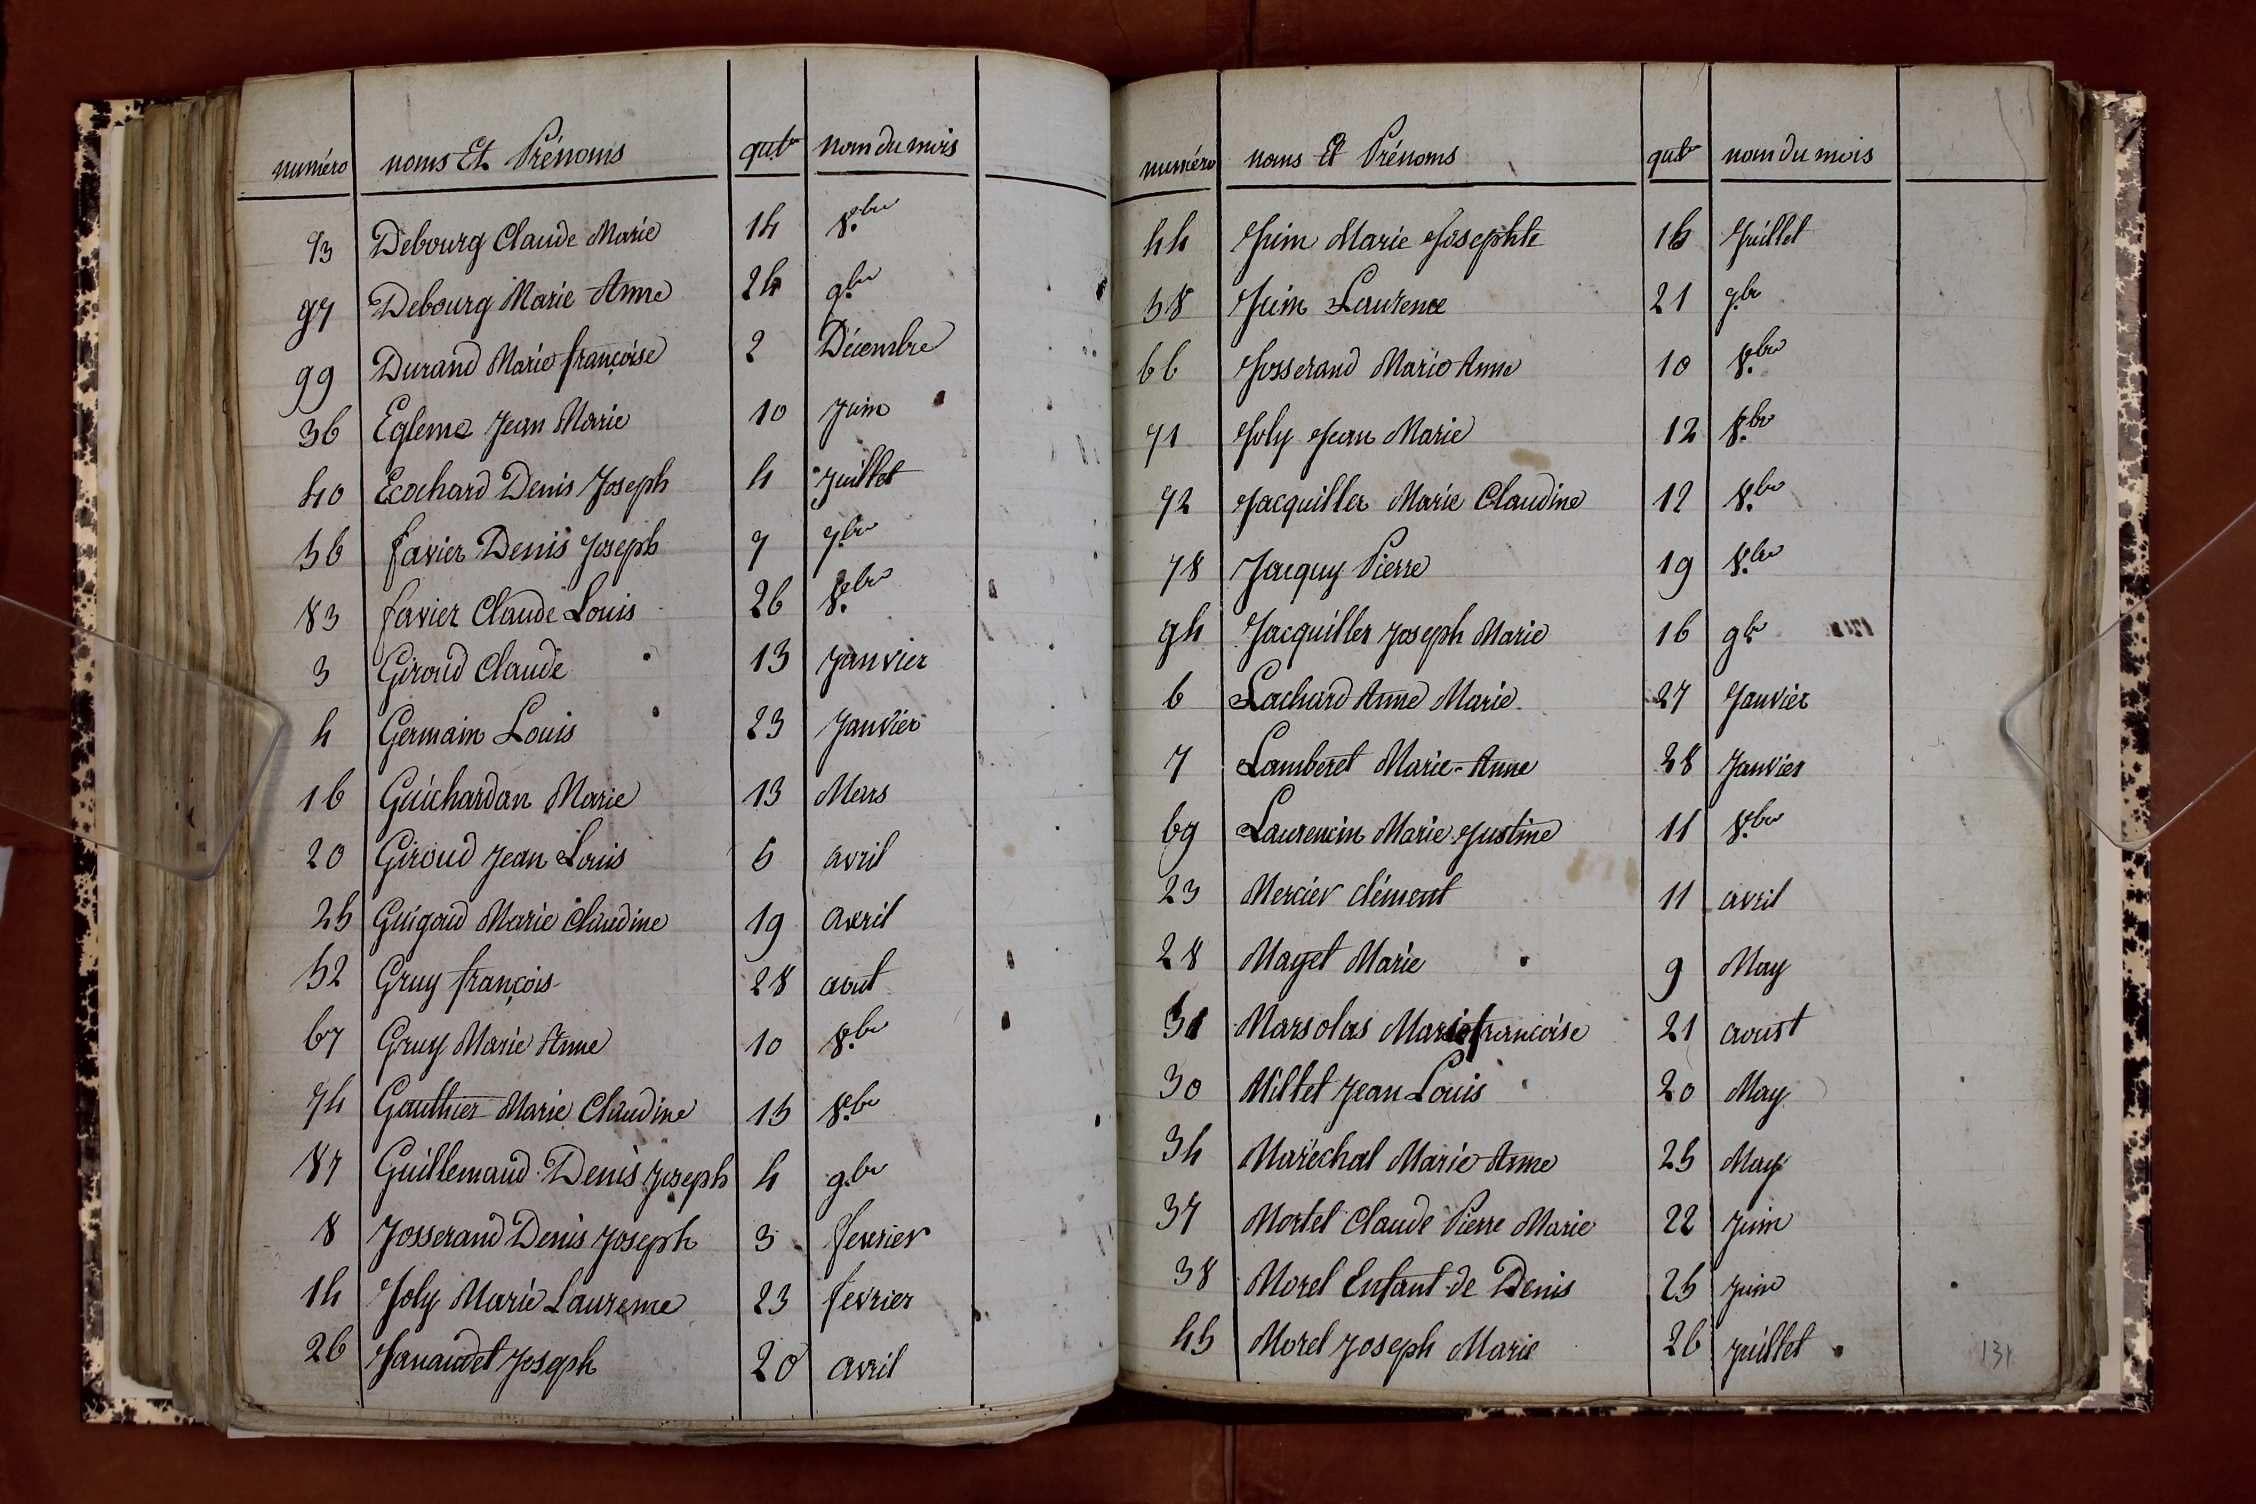 numéro noms Et Prénoms qute nom du mois
73 Debourg Claude Marie 14 8.bre
97 Debourg Marie Anne 24 9.bre
99 Durand Marie françoise 2 Décembre
36 Egleme Jean Marie 10 Juin
40 Ecochard Denis Joseph 4 Juillet
56 favier Denis Joseph 7 7.bre
83 favier Claude Louis 26 8.bre
3 Giroud Claude 13 Janvier
4 Germain Louis 23 Janvier
16 Guichardan Marie 13 Mars
20 Giroud Jean Louis 5 avril
25 Guigoud Marie Claudine 19 avril
52 Gruy françois 28 aout
67 Gruy Marie Anne 10 8.bre
74 Gauthier Marie Claudine 15 8.bre
87 Guillemaud Denis Joseph 4 9.bre
8 Josserand Denis Joseph 3 fevrier
14 Joly Marie Laurence 23 fevrier
26 Janaudet Joseph 20 avril
numéro noms Et Prénoms qute nom du mois
44 Juin Marie Josephte 15 Juillet
58 Juin Laurence 21 7.bre
66 Josserand Marie Anne 10 8.bre
71 Joly Jean Marie 12 8.bre
72 Jacquiller Marie Claudine 12 8.bre
78 Jacquy Pierre 19 8.bre
94 Jacquiller Joseph Marie 16 9.bre
6 Lachard Anne Marie 27 Janvier
7 Lamberet Marie-Anne 28 Janvier
69 Laurencin Marie Justine 11 8.bre
23 Mercier clément 11 avril
28 Mayet Marie 9 May
51 Marsolas Marie françoise 21 aoust
30 Millet Jean Louis 20 May
34 Maréchal Marie Anne 25 May
37 Mortel Claude Pierre Marie 22 Juin
38 Morel Enfant de Denis 25 Juin
45 Morel Joseph Marie 26 Juillet
131